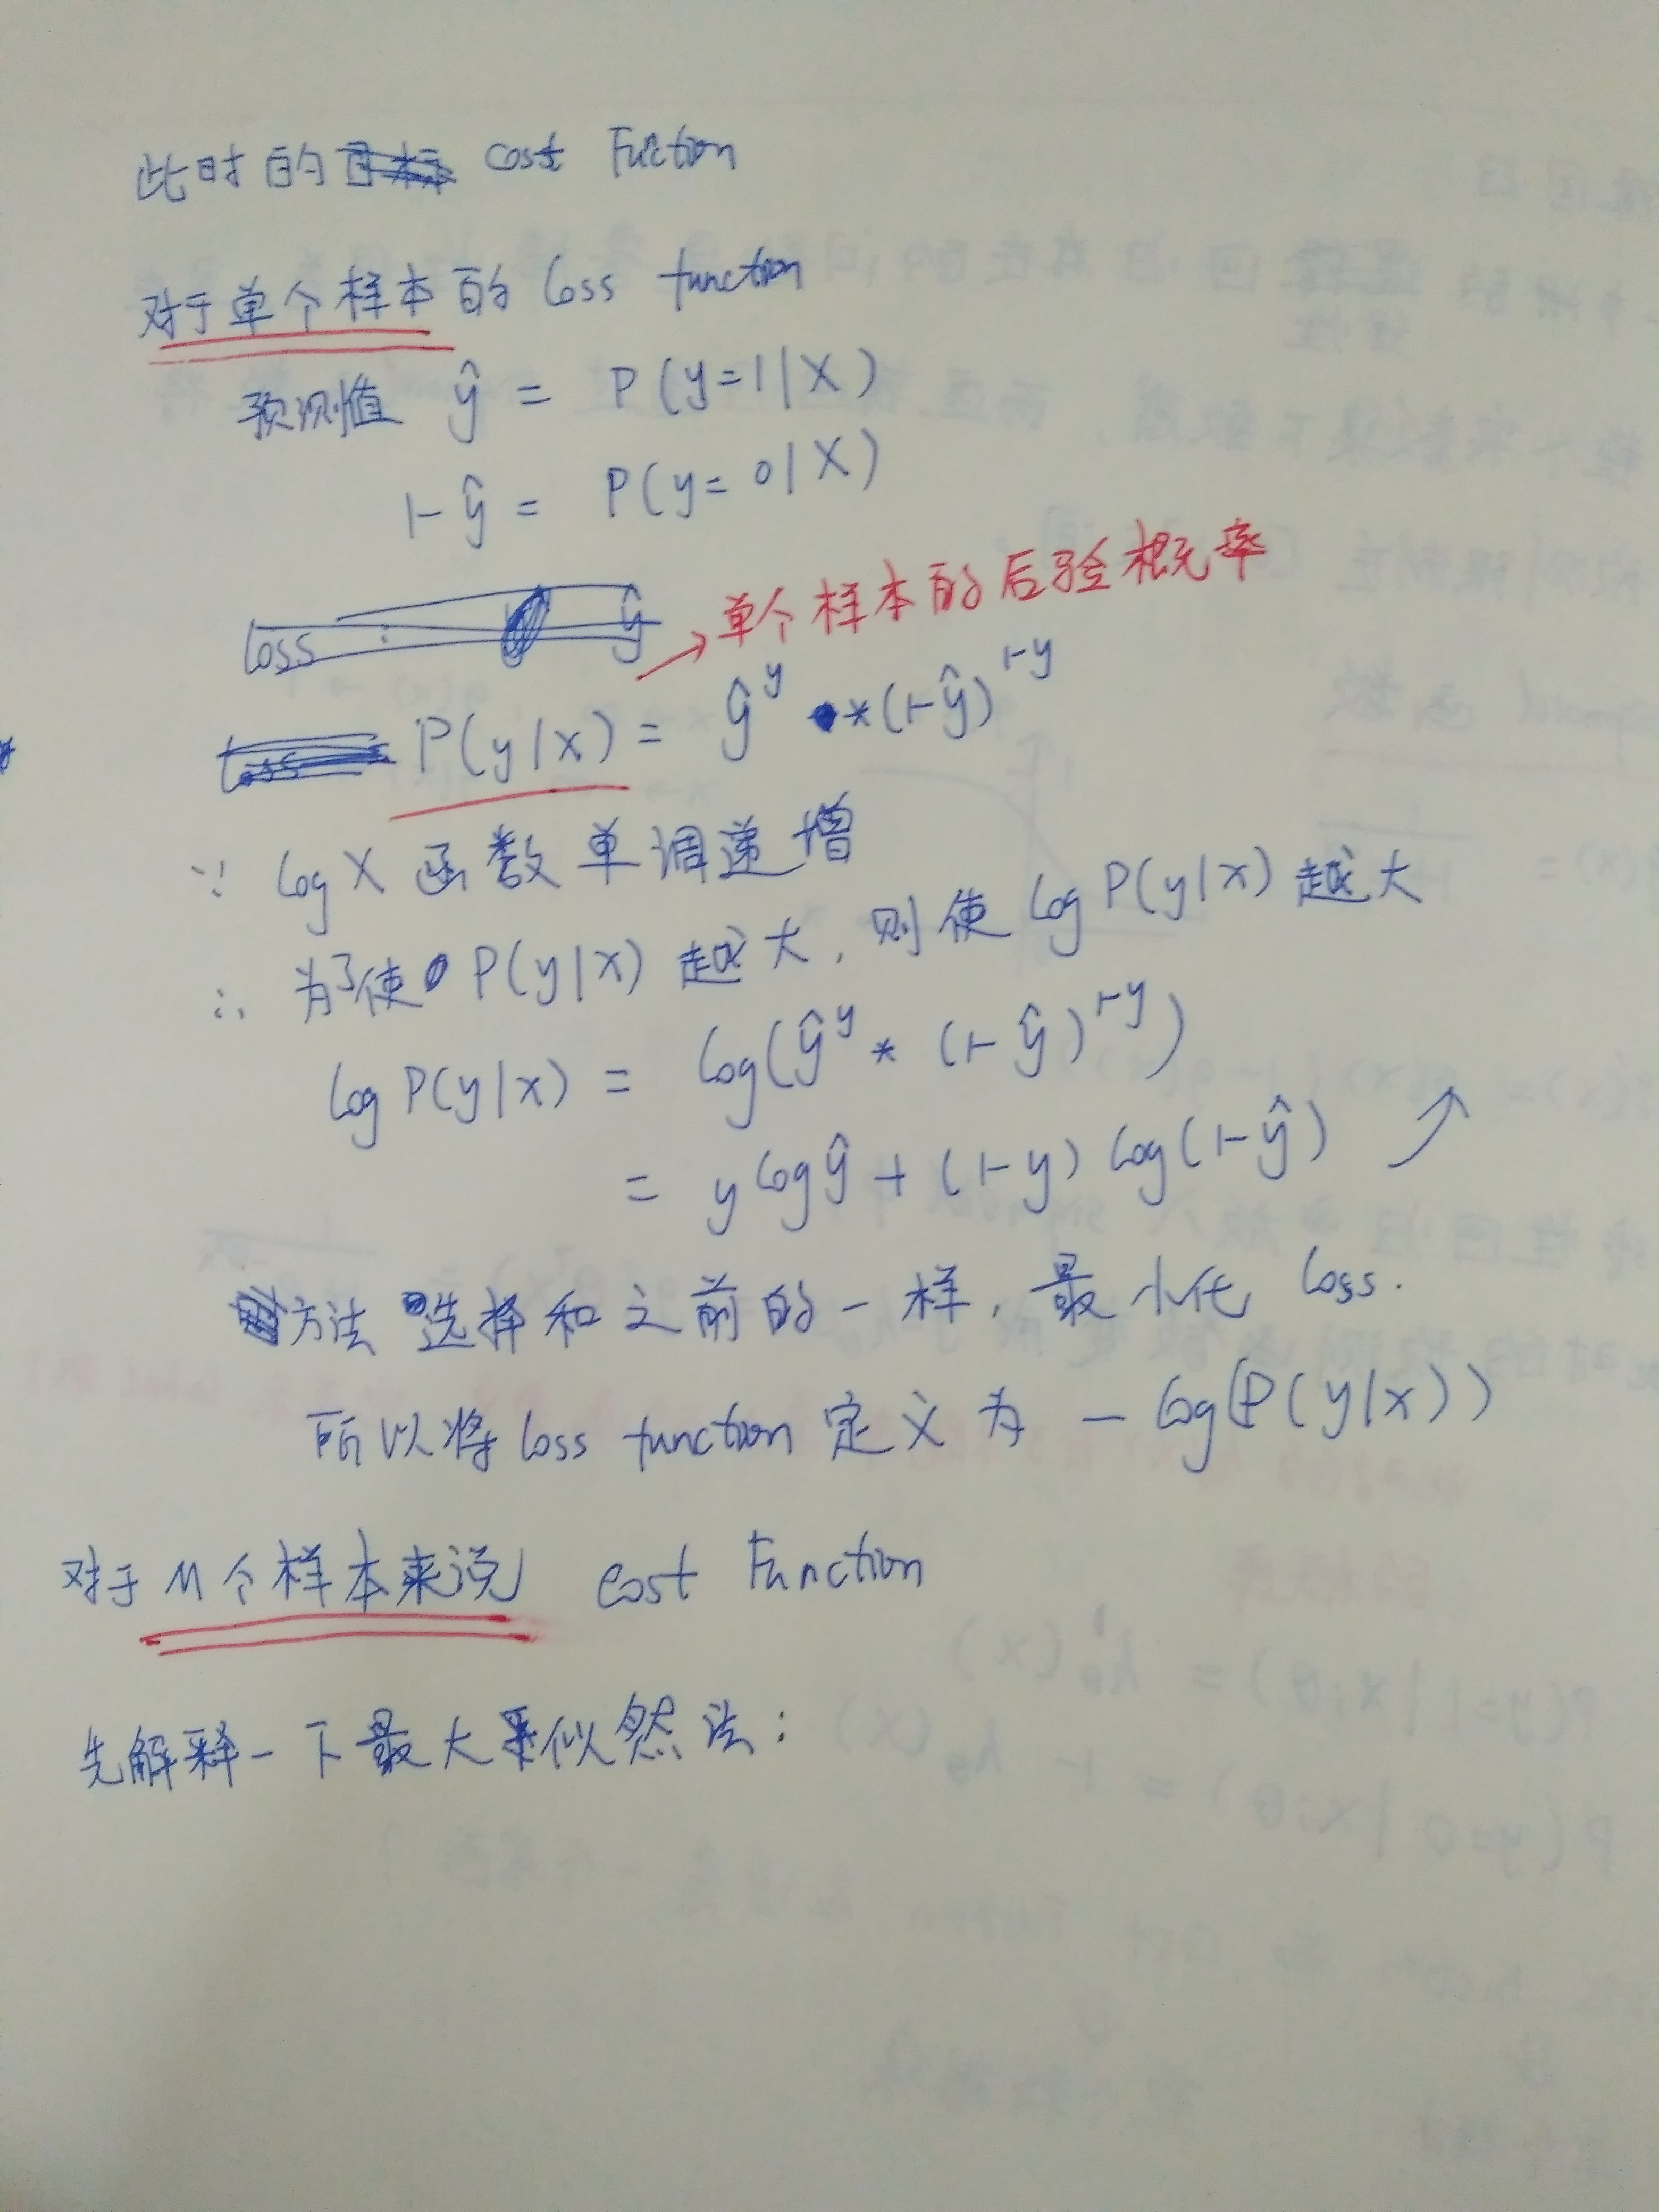 此时的 cost Fuction
对于单个样本的 loss function
预测值 ŷ = P(y=1|X)
1-ŷ = P(y=0|X)
loss : ŷ
→单个样本的后验概率
Loss P(y|x) = ŷ^y *(1-ŷ)^1-y
∵ log X 函数单调递增
∴ 为了使 P(y|x) 越大, 则使 log P(y|x) 越大
log P(y|x) = log(ŷ^y * (1-ŷ)^1-y)
= y log ŷ + (1-y) log(1-ŷ) ↗
方法选择和之前的一样, 最小化 loss.
所以将 loss function 定义为 - log(P(y|x))
对于M个样本来说 cost Function
先解释一下最大似然法: